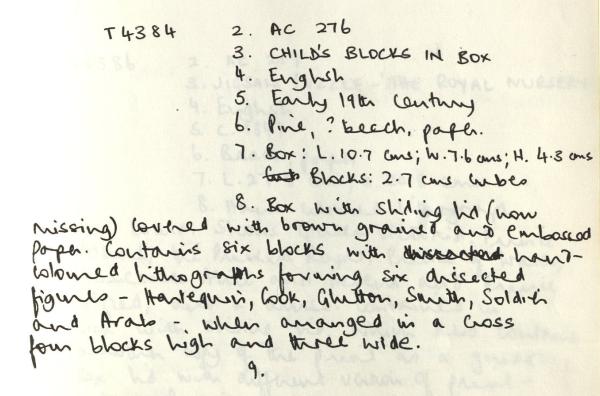 T4384 2. AC 276
3. CHILD'S BLOCKS IN BOX
4. English
5. Early 19th Century
6. Pine, ? beech, paper.
7. Box: L. 10.7 cms; W. 7.6 cms; H. 4.3 cms
Blocks: 2.7 cms cubes
8. Box with sliding lid (now
missing) covered with brown grained and embossed
paper. Contains six blocks with dissected hand-
coloured lithographs forming six dissected
figures - Harlequin, Cook, Glutton, Smith, Soldier
and Arab. when arranged in a cross
four blocks high and three wide.
9.